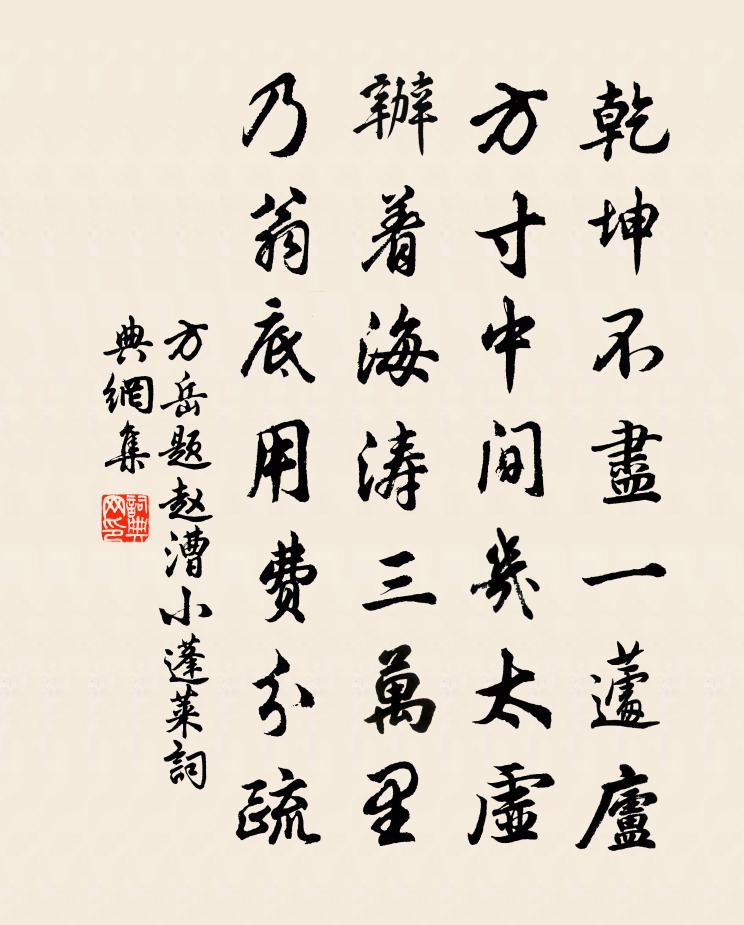 乾坤不盡一蘧廬
方寸中間幾太虛
辦着海濤三萬里
乃翁底用費分疏
方岳题赵漕小蓬莱詞
典網集
詞典网印